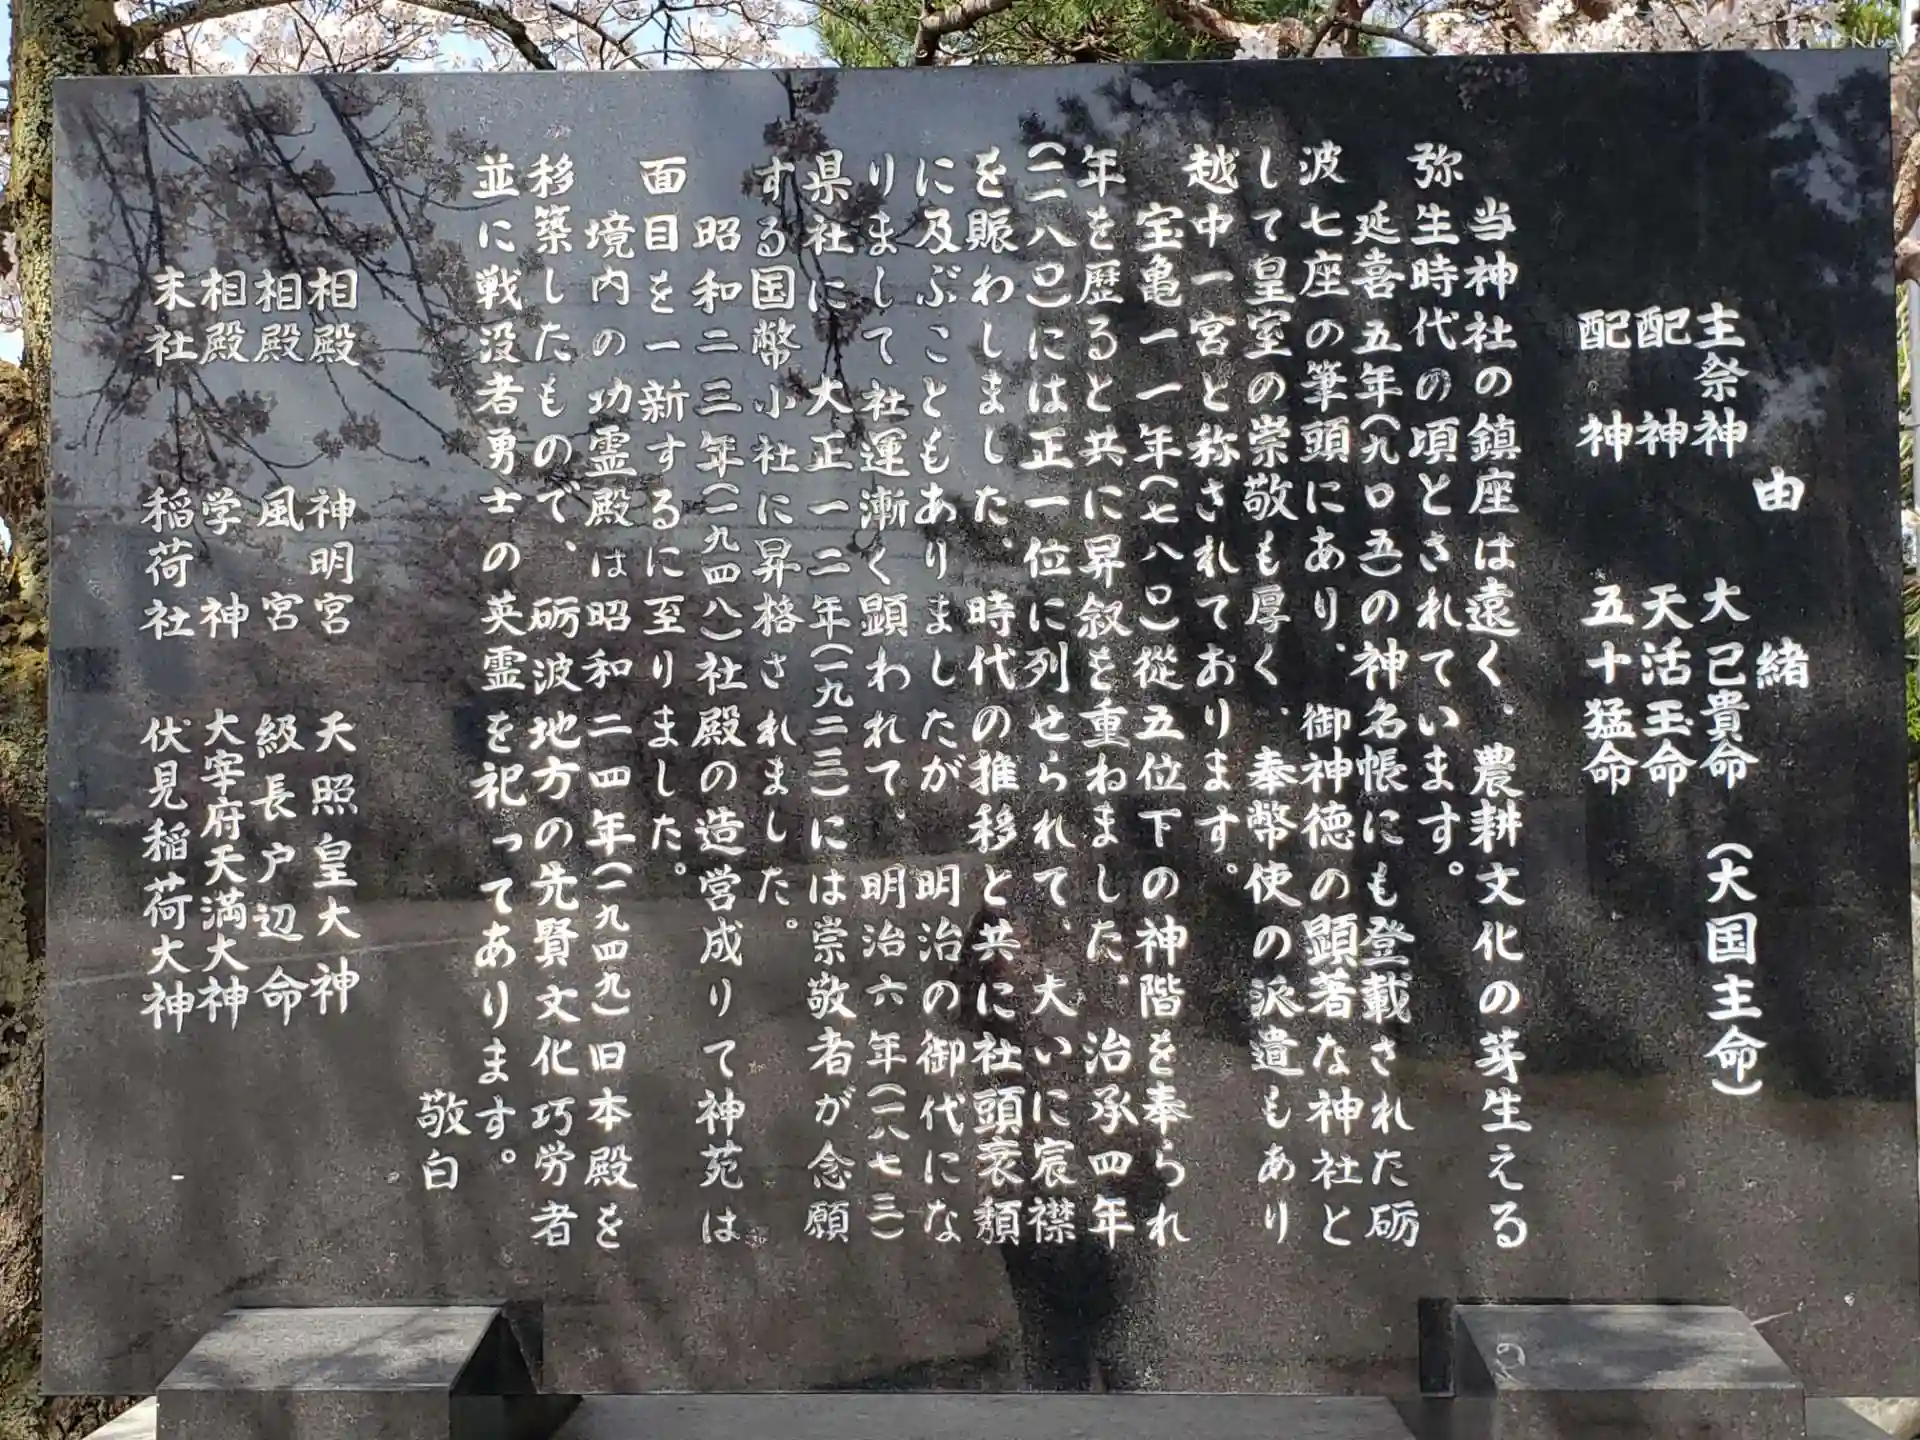 由緒
主祭神 大己貴命（大国主命）
配神 天活玉命
配神 五十猛命
当神社の鎮座は遠く、農耕文化の芽生える
弥生時代の頃とされています。
延喜五年（九〇五）の神名帳にも登載された砺
波七座の筆頭にあり、御神徳の顕著な神社と
して皇室の崇敬も厚く、奉幣使の派遣もあり
越中一宮と称されております。
宝亀一一年（七八〇）從五位下の神階を奉られ
年を歴ると共に昇叙を重ねました、治承四年
（一一八〇）には正一位に列せられて、大いに宸襟
を賑わしました、時代の推移と共に社頭衰頽
に及ぶこともありましたが 明治の御代にな
りまして社運漸く顕われて、明治六年（一八七三）
県社に 大正一二年（一九二三）には崇敬者が念願
する国幣小社に昇格されました。
昭和二三年（一九四八）社殿の造営成りて神苑は
面目を一新するに至りました。
境内の功霊殿は昭和二四年（一九四九）旧本殿を
移築したもので、砺波地方の先賢文化巧労者
並に戦没者勇士の英霊を祀ってあります。
敬白
相殿 神明宮 天照皇大神
相殿 風宮 級長戸辺命
相殿 学神 大宰府天満大神
末社 稲荷社 伏見稲荷大神